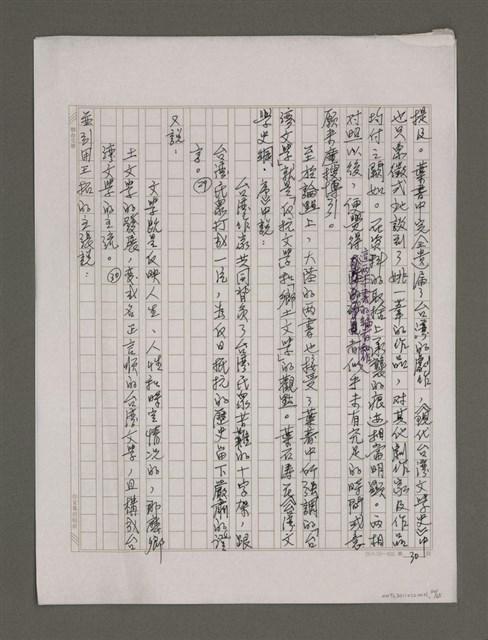 提及。葉書中完全貴屬了台灣的劇作，《現代台灣文學史》中
也只象徵式地談到了姚一葦的作品，對其他劇作家及作品
均付之闕如。在資料的取捨上承襲的痕迹相當明顯。兩相
對照以後，便覺得這兩本書的編者似乎未有充足的時間或意
願來廣搜博引。
至於論點上，大陸的兩書也接受了葉書中所強調的台
灣文學就是「反抗文學」和「鄉土文學」的觀點。葉石濤在《台灣文
學史綱‧序》中說：
台灣作家共同背負了台灣民眾苦難的十字架，跟
台灣民眾打成一片，為反日抵抗的歷史留下嚴肅的證
言。㉙
又說：
文學既是反映人生、人性和時空情況的，那麼鄉
土文學的發展，變成名正言順的台灣文學，且構成台
灣文學的主流。㉚
並引用王拓的主張說：
30